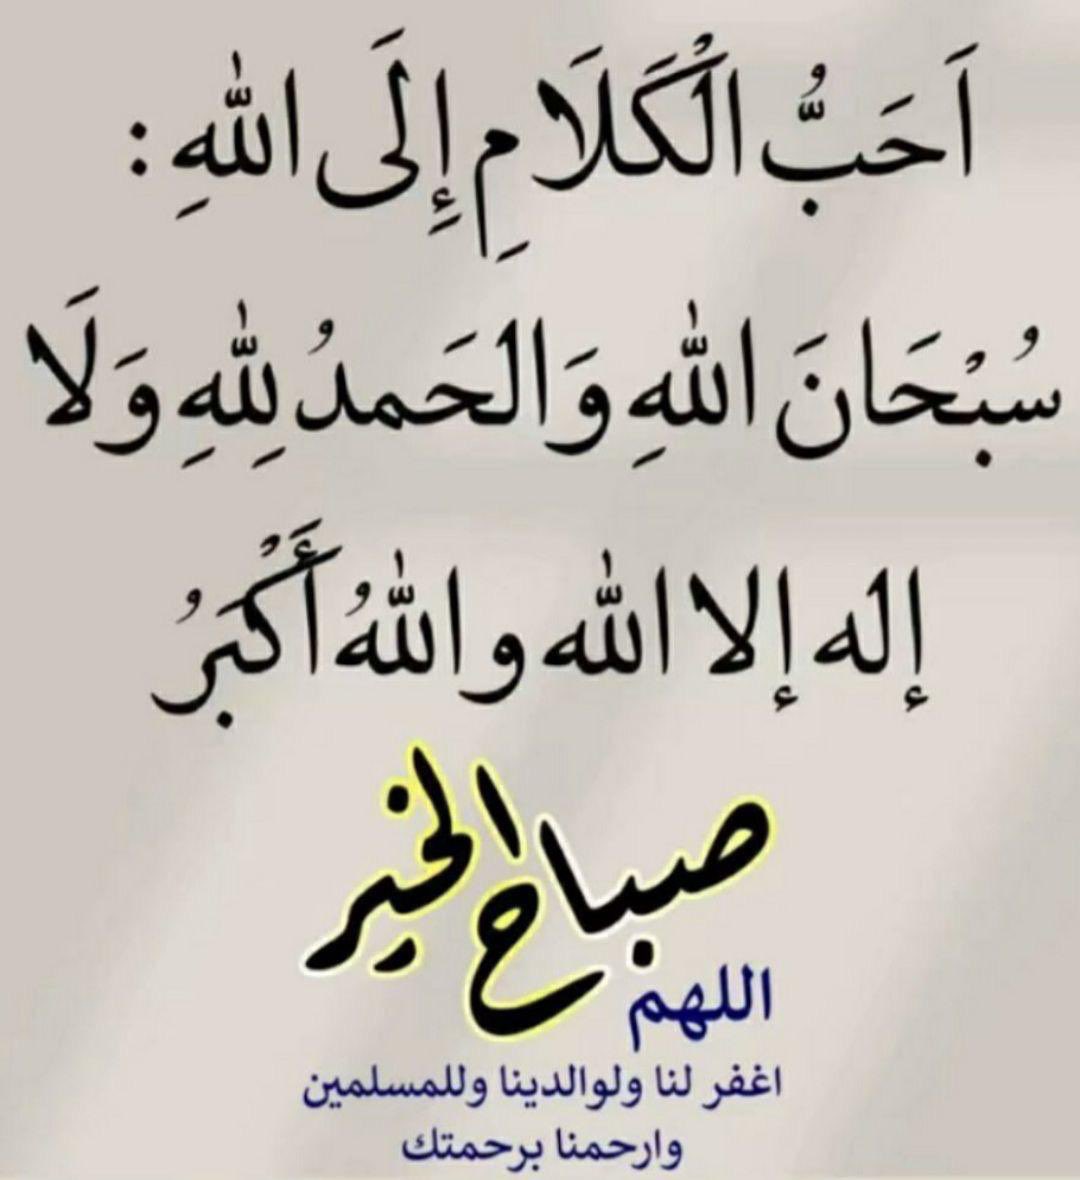 اَحَبُّ الْكَلَامِ إِلَى اللّٰهِ :
سُبْحَانَ اللّٰهِ وَالحَمدُ لِلّٰهِ وَلَا
إله إلا اللّٰه واللّٰهُ أَكْبَرُ
صباح الخير
اللهم
اغفر لنا ولوالدينا وللمسلمين
وارحمنا برحمتك